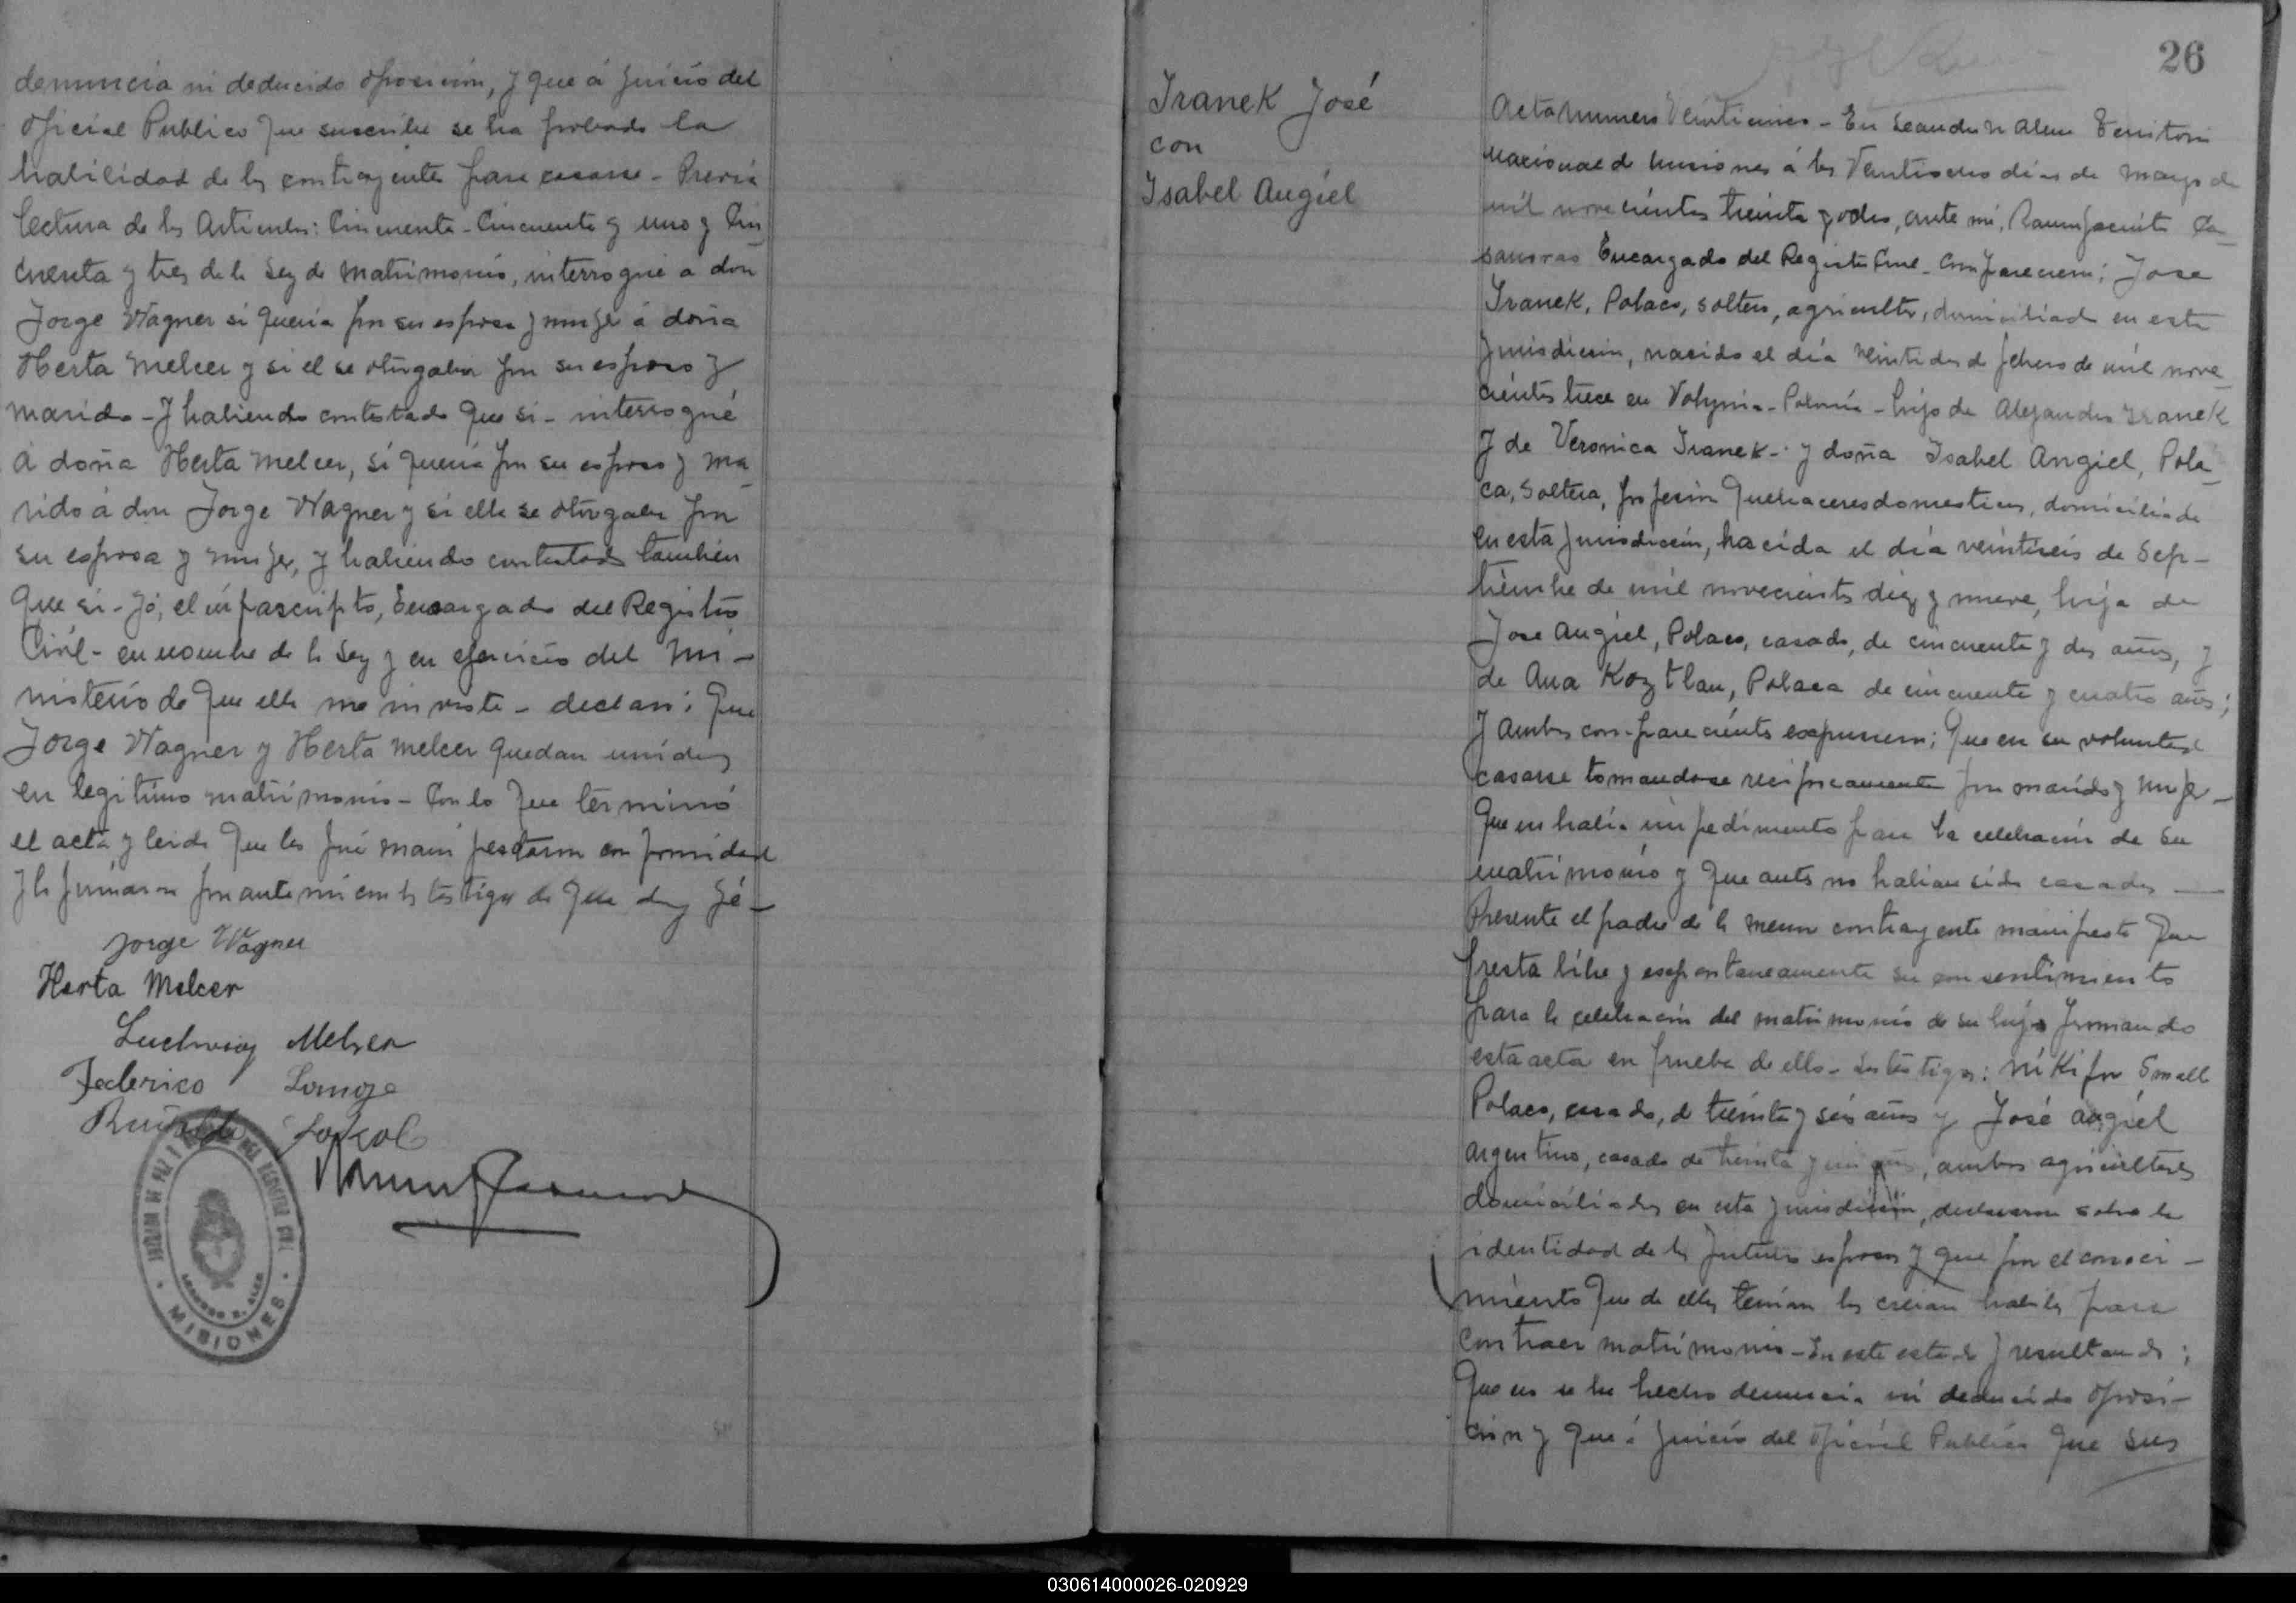 denuncia ni deducido oposición, y que á juicio del
Oficial Publico que suscribe se ha probado la
habilidad de los contrayentes para casarse - Previa
lectura de los Articulos: Cincuenta - Cincuenta y uno y Cin
cuenta y tres de la Ley de Matrimonio, interrogué a don
Jorge Wagner si queria por su esposa y mujer á doña
Herta Melcer y si el se otorgaba por su esposo y
marido - Y habiendo contestado que si - interrogué
á doña Herta Melcer, si queria por su esposo y ma
rido á don Jorge Wagner y si ella se otorgaba por
su esposa y mujer, y habiendo contestado tambien
que si - Yo, el infrascripto, Encargado del Registro
Civil - en nombre de la Ley y en ejercicio del Mi-
nisterio de que ella me inviste - declaro: Que
Jorge Wagner y Herta Melcer quedan unidos
en legitimo matrimonio - Con lo que terminó
el acta y leida que les fué manifestaron conformidad
y la firmaron por ante mi con los testigos de que doy fé -
Jorge Wagner
Herta Melcer
Ludwig Melzer
Federico
MISIONES
Iranek José
con
Isabel Angiel
26
Acta numero Veinticinco - En Leandro N Alem Territorio
Nacional de Misiones á los Veintiocho dias de Mayo de
mil novecientos treinta y ocho, ante mi, Ca-
sanovas Encargado del Registro Civil - Comparecieron: Jose
Iranek, Polaco, soltero, agricultor, domiciliado en esta
Jurisdicción, nacido el día veintidos de febrero de mil nove-
cientos trece en Volynia - Polonia - hijo de Alejandro Iranek
y de Veronica Iranek - y doña Isabel Angiel, Pola-
ca, Soltera, profesion Quehaceres domesticos, domiciliada
en esta Jurisdicción, nacida el día veintiseis de Sep-
tiembre de mil novecientos diez y nueve, hija de
Jose Angiel, Polaco, casado, de cincuenta y dos años, y
de Ana Koztlan, Polaca de cincuenta y cuatro años;
Y ambos comparecientes expusieron: Que era su voluntad
casarse tomandose reciprocamente por marido y mujer -
Que no habia impedimento para la celebración de su
matrimonio y que antes no habian sido casados -
Presente el padre de la menor contrayente manifesto que
presta libre y espontaneamente su consentimiento
para la celebración del matrimonio de su hija firmando
esta acta en prueba de ello - Los testigos: Nikifor Small
Polaco, casado, de treinta y seis años y José Angiel
argentino, casado de treinta y un años, ambos agricultores
domiciliados en esta jurisdicción, declararon sobre la
identidad de los futuros esposos y que por el conoci-
miento que de ellos tenian los creian habiles para
contraer matrimonio - En este estado y resultando:
Que no se ha hecho denuncia ni deducido oposi-
cion y que á juicio del Oficial Publico que sus
030614000026-020929